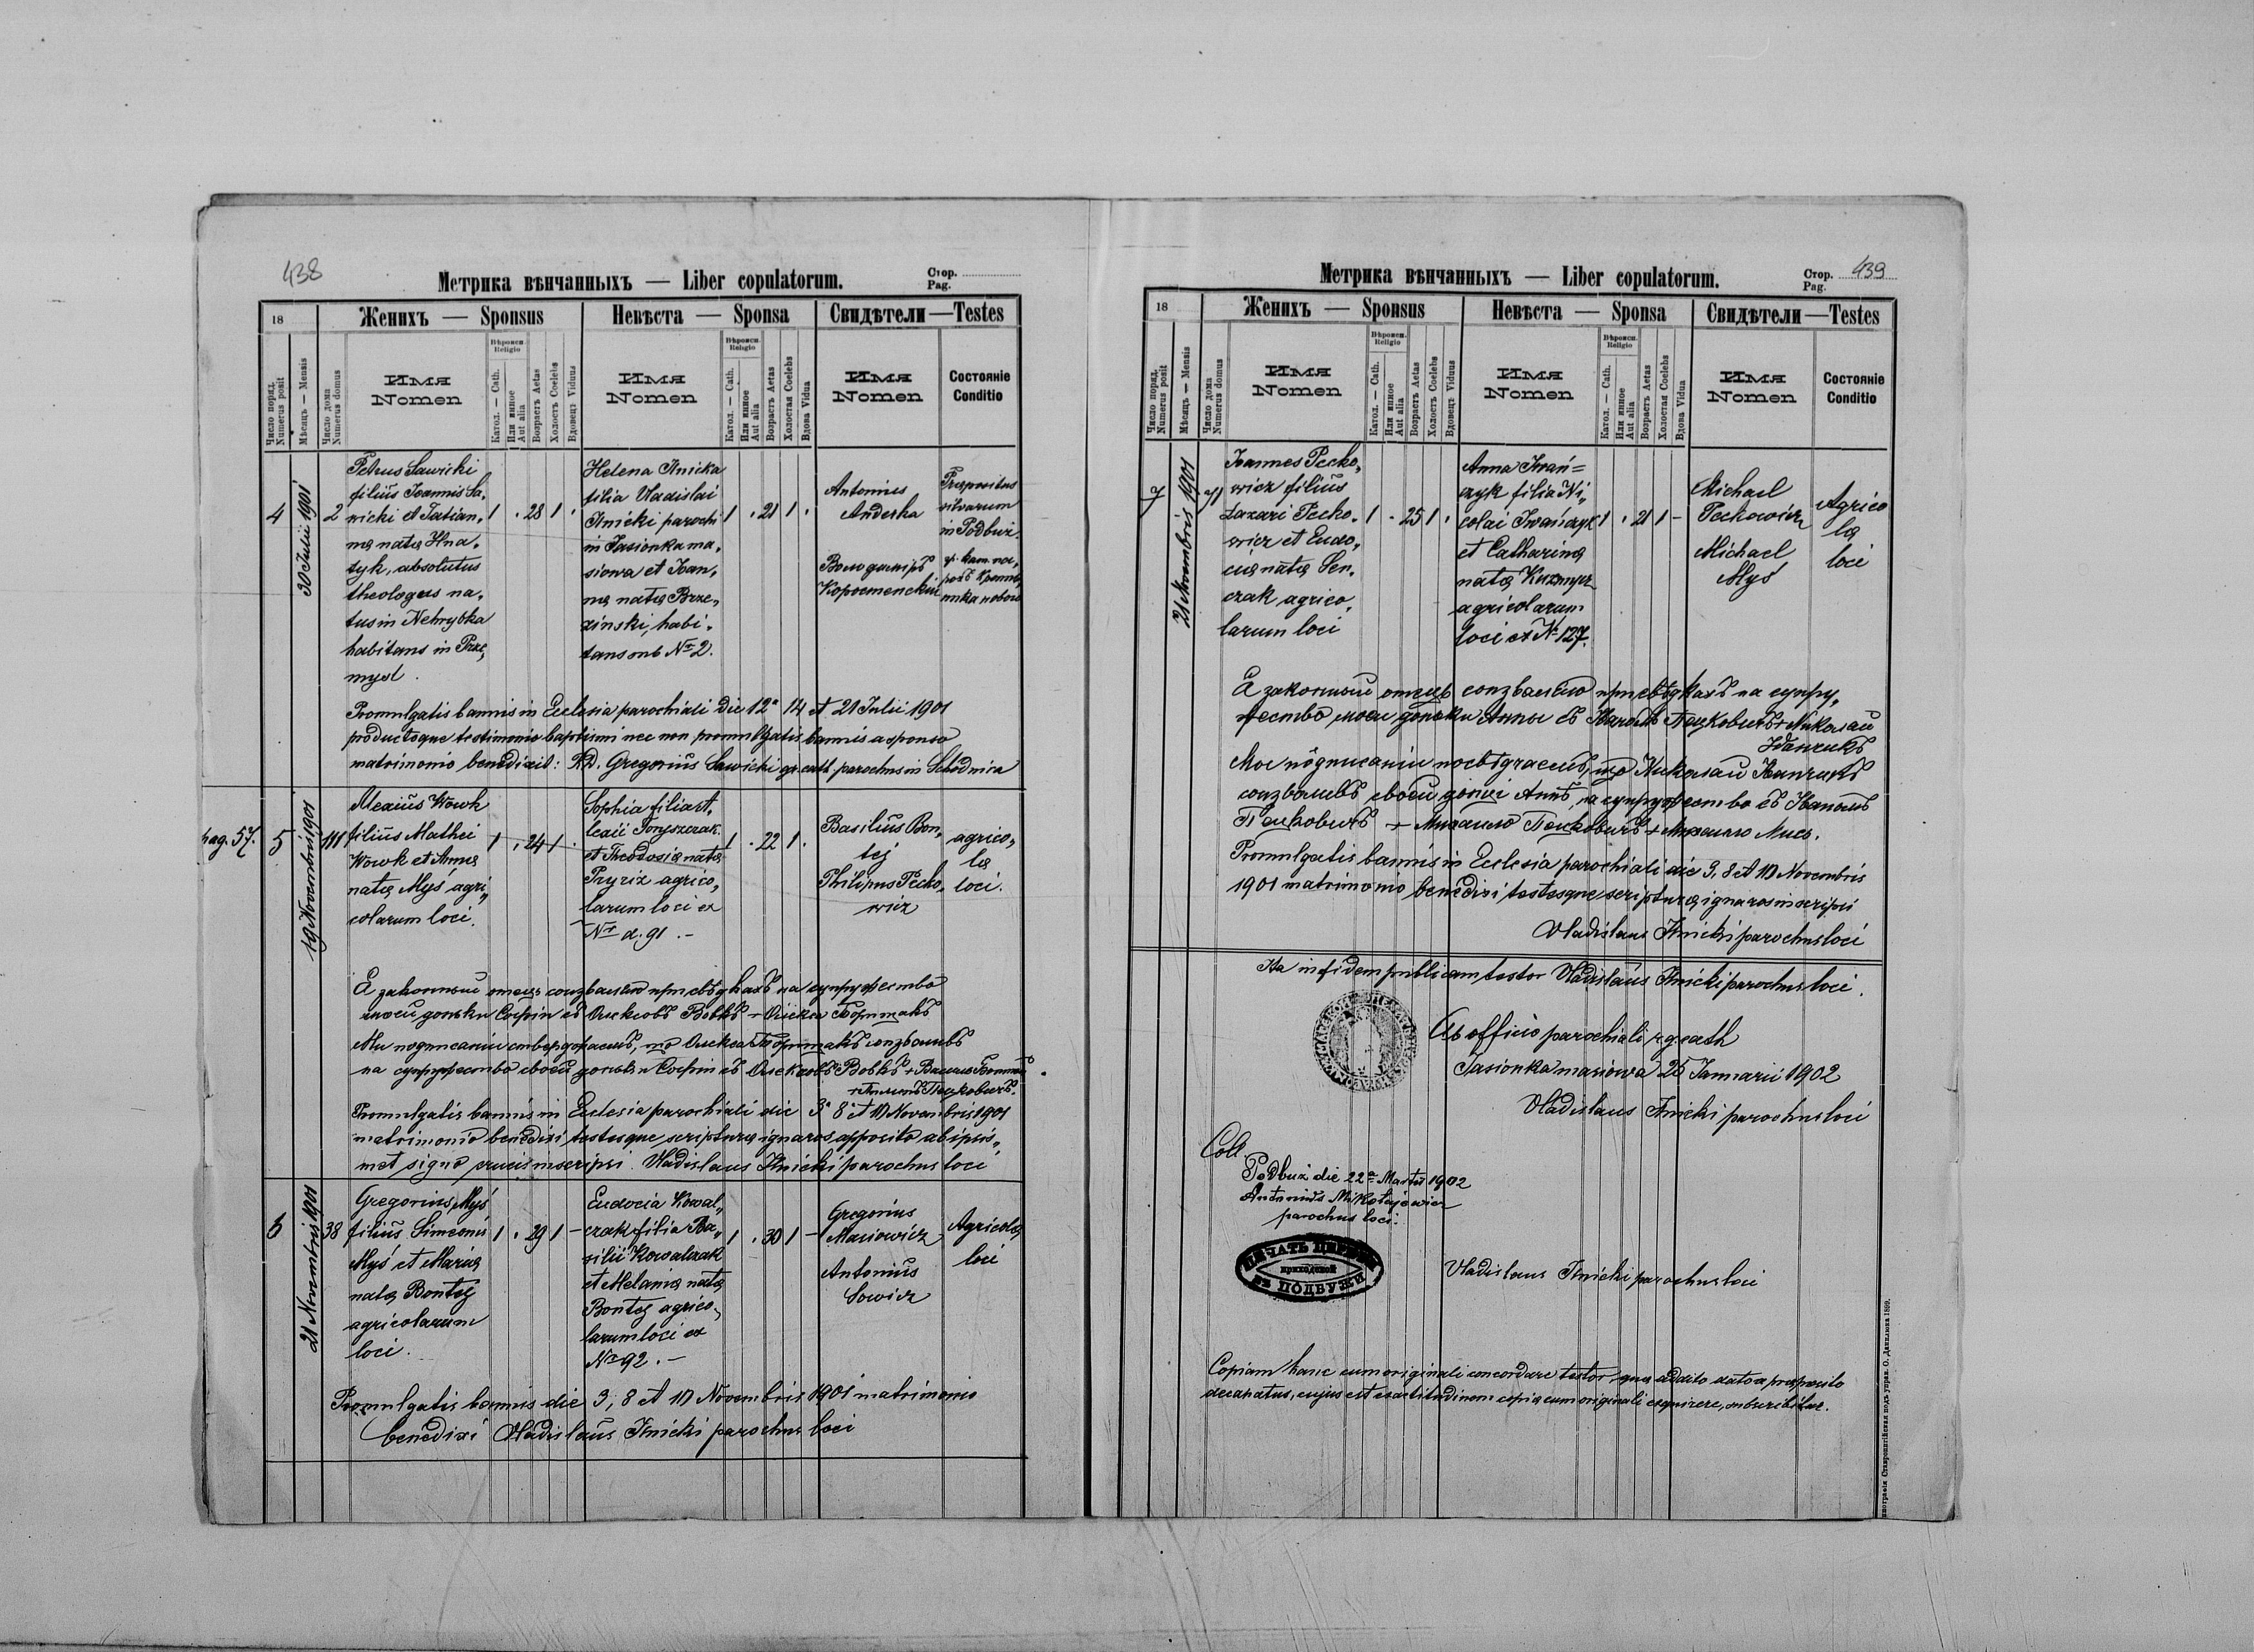 438
Метрика вѣнчанныхъ — Liber copulatorum.
Стор.
Pag.
18
Женихъ — Sponsus
Невѣста — Sponsa
Свидѣтели — Testes
Число поряд.
Numerus posit
Мѣсяцъ — Mensis
Число дома
Numerus domus
Имя
Nomen
Вѣроисп.
Religio
Катол. — Cath.
Или иное
Aut alia
Возрастъ Aetas
Холостъ Coelebs
Вдовецъ Viduus
Имя
Nomen
Вѣроисп.
Religio
Катол. — Cath.
Или иное
Aut alia
Возрастъ Aetas
Холостая Coelebs
Вдова Vidua
Имя
Nomen
Состоянiе
Conditio
4
30 Julii 1901
2
Petrus Sawicki
filius Joannis Sa„
wicki et Tatian„
nę natę Hna„
tyk, absolutus
theologus na„
tus in Nehrybka
habitans in Prze„
mysl.
1 . 28 1 .
Helena Ilnicka
filia Vladislai
Ilnicki parochi
in Jasionka ma„
siowa et Joan„
nę natę Brze„
zinski, habi„
tans sub Nr 2.
1 . 21 1 .
Antonius
Anderka
Praepositus
silvarum
in Podbuż
Володимiръ
Коростенскiй
Promulgatis bannis in Ecclesia parochiali die 12ª 14 et 21 Julii 1901
productoque testimonio baptismi nec non promulgatis bannis a sponso
matrimonio benedixit: R.D. Gregorius Sawicki gr. cath. parochus in Schodnica
pag. 57.
5
19 Novembris 1901
111
Alexius Wowk
filius Mathei
Wowk et Annę
natę Myś agri„
colarum loci.
1 . 24 1 .
Sophia filia A„
lexii Toryszczak
et Theodosię natę
Pryriz agrico„
larum loci ex
Nr d. 91 . –
1 . 22 1 .
Basilius Bon„
tej
Philipus Pecko„
wicz
agrico„
lę
loci.
Я законный отець соизваляю при свѣдкахъ на супружество
моєи доньки Софiи съ Олексою Вовкъ
на супружество своєи доньки Софiи съ
Promulgatis bannis in Ecclesia parochiali die 3ª 8ª et 10 Novembris 1901
matrimonio benedixi testesque scripturę ignaros apposito ab ipsis„
met signo crucis inscripsi. Vladislaus Ilnicki parochus loci
6
21 Novembris 1901
38
Gregorius Myś
filius Simeonis
Myś et Marię
natę Bontej
agricolarum
loci.
1 . 29 1 –
Eudocia Kowal„
czak filia Ba„
silii Kowalczak
et Melanię natę
Bontej agrico„
larum loci ex
Nr 92 . –
1 . 30 1 –
Gregorius
Masiowicz
Antonius
Sowicz
Agricolę
loci
Promulgatis bannis die 3, 8 et 10 Novembris 1901 matrimonio
benedixi Vladislaus Ilnicki parochus loci
439
Метрика вѣнчанныхъ — Liber copulatorum.
Стор.
Pag.
18
Женихъ — Sponsus
Невѣста — Sponsa
Свидѣтели — Testes
Число поряд.
Numerus posit
Мѣсяцъ — Mensis
Число дома
Numerus domus
Имя
Nomen
Вѣроисп.
Religio
Катол. — Cath.
Или иное
Aut alia
Возрастъ Aetas
Холостъ Coelebs
Вдовецъ Viduus
Имя
Nomen
Вѣроисп.
Religio
Катол. — Cath.
Или иное
Aut alia
Возрастъ Aetas
Холостая Coelebs
Вдова Vidua
Имя
Nomen
Состоянiе
Conditio
7
21 Novembris 1901
Joannes Pecko„
wicz filius
Lazari Pecko„
wicz et Eudo„
cię natę Sen„
czak agrico„
larum loci
1 . 25 1 .
Anna Iwań=
czyk filia Ni„
colai Iwańczyk
et Catharinę
natę Kuzmycz
agricolarum
loci ex Nr 127.
1 . 21 1 –
Michael
Peckowicz
Michael
Myś
Agrico
lę
loci
Я законный отець соизваляю при свѣдкахъ на супру„
жество моєи доньки Анны съ Iваномъ Пецковичъ + Николай
Iванчикъ
Мы подписанiи посвѣдчаємъ, що Николай Iванчикъ
соизваливъ своєи доньцi Аннѣ, на супружество съ Iваномъ
Пецковичъ + Михайло Пецковичъ + Михайло Мись.
Promulgatis bannis in Ecclesia parochiali die 3, 8 et 10 Novembris
1901 matrimonio benedixi testesque scripturę ignaros inscripsi
Vladislaus Ilnicki parochus loci
Ita in fidem publicam testor Vladislaus Ilnicki parochus loci.
Ab officio parochiali r. g. cath
Jasionka masiowa 25 Januarii 1902
Vladislaus Ilnicki parochus loci
Coll.
Podbuż die 22ª Martii 1902
Antonius Mikołajewicz
parochus loci.
ПЕЧАТЬ ЦЕРКВИ
приходской
въ ПОДБУЖИ
Vladislaus Ilnicki parochus loci
Copiam hanc cum originali concordare testor, quę addito dato a praeposito
decanatus, cujus est exactitudinem copię cum originali exquirere, subscribitur.
Типографiя Ставропигiйская подъ управ. О. Данилюка 1899.